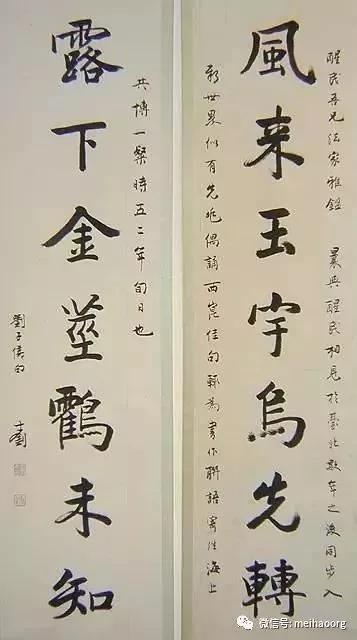 醒民吾兄法家雅鑒 曩與醒民相見於臺北數年之後同步入
風来玉宇烏先轉
新世界似有先兆偶誦西崑佳句輒為書作聯語寄往海上
共博一粲時五二年旬日也
露下金莖鸖未知
劉子儀句 士釗
微信号: meihaoorg